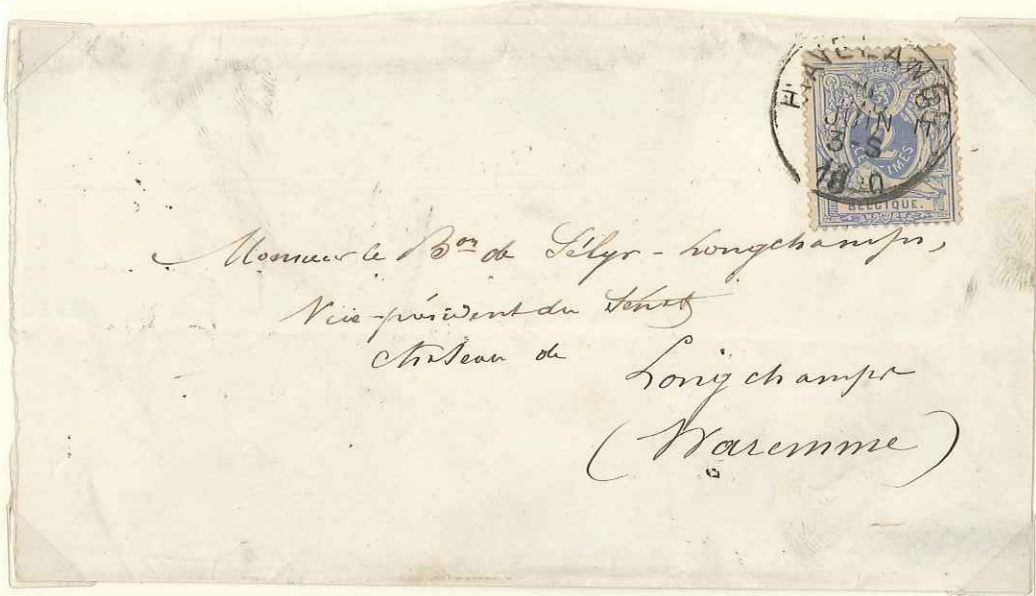 HAVELANGE
JUIN
8-S
1880
2
CENTIMES
BELGIQUE.
Monsieur le Bon de Sélys-Longchamps,
Vice-président du Sénat
Château de
Longchamps
(Waremme)